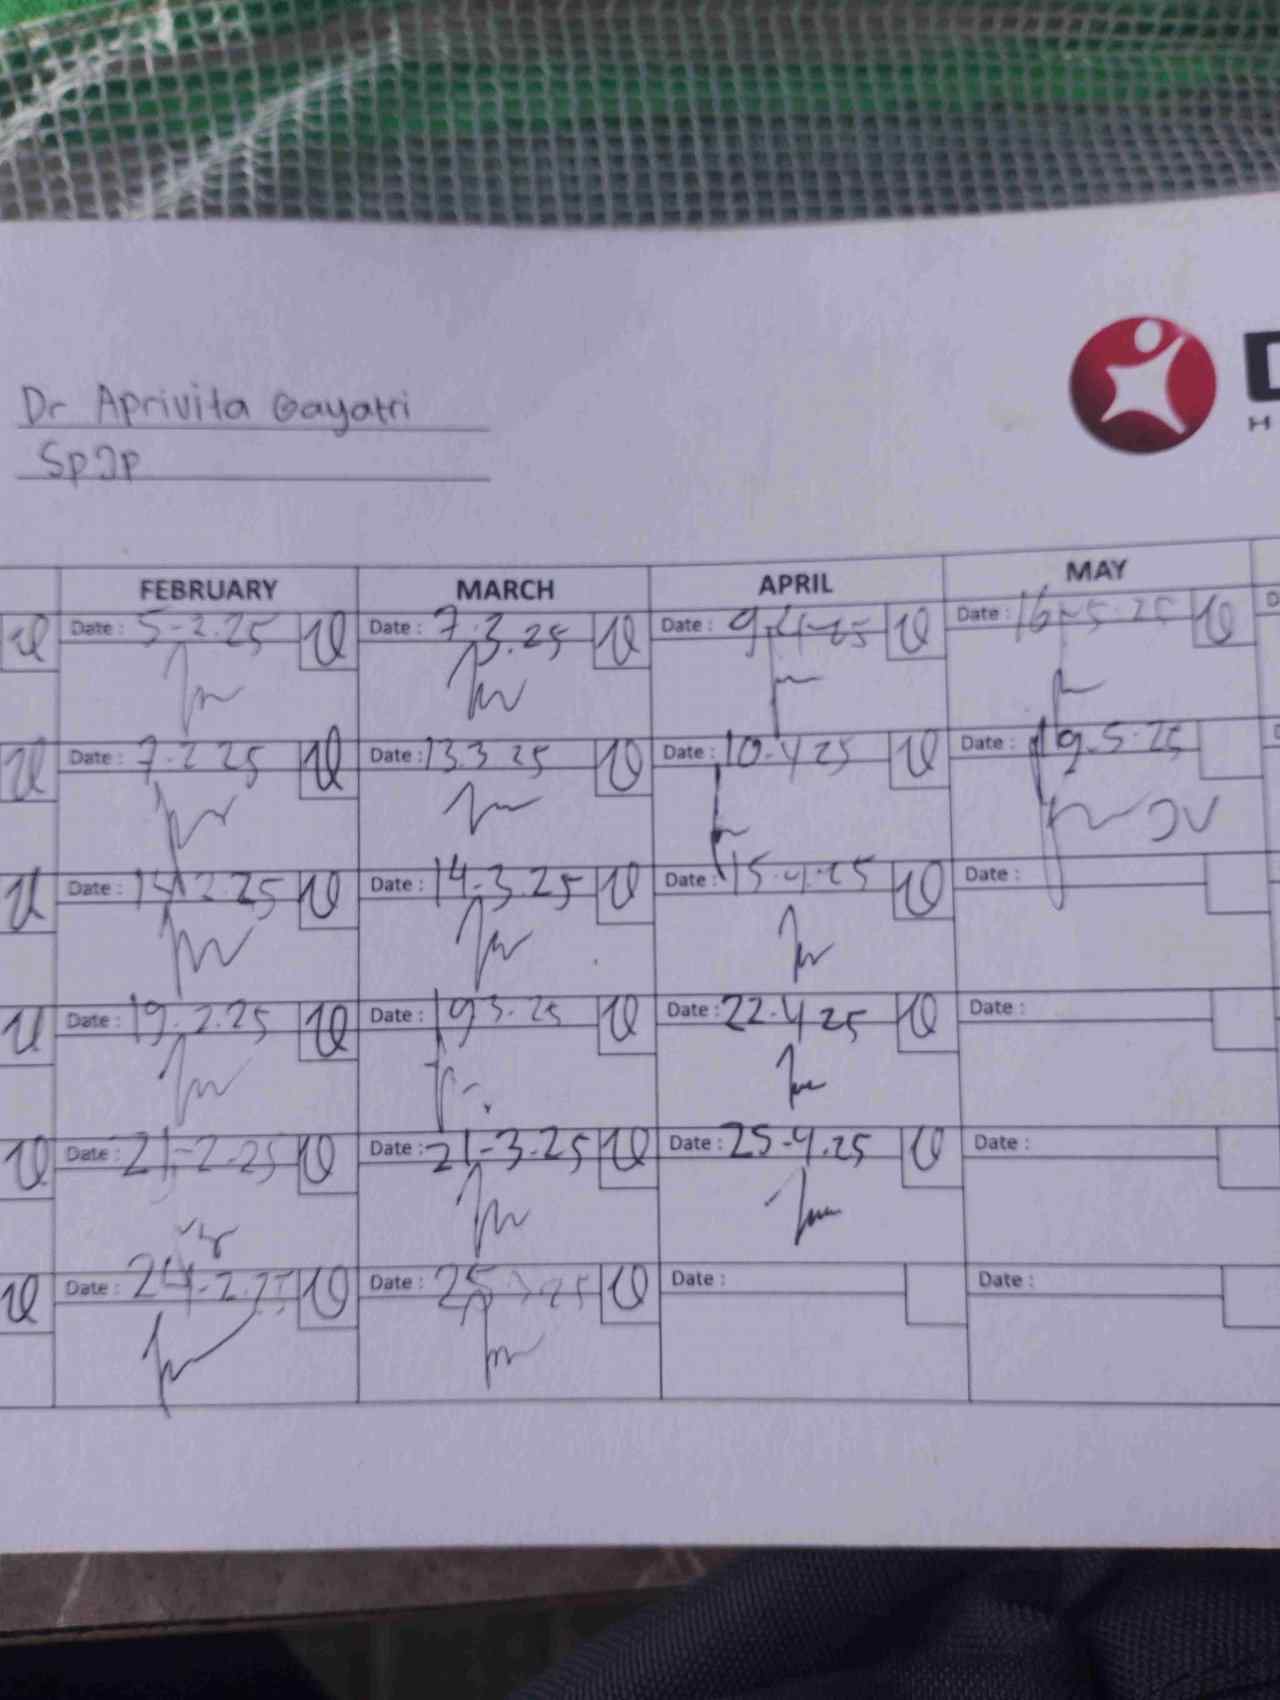 Dr Aprivita Gayatri
SpJp
D
H
FEBRUARY MARCH APRIL MAY
Date : 5-2.25 Date : 7.3.25 Date : 9-4-25 Date : 16-5-25 D
Date : 7.2.25 Date : 13.3 25 Date : 10.4 25 Date : 19.5.25 D
JV
Date : 14.2.25 Date : 14.3.25 Date : 15.4.25 Date :
Date : 19.2.25 Date : 19 3.25 Date : 22.4 25 Date :
Date : 21-2-25 Date : 21-3.25 Date : 25-4.25 Date :
Date : 24-2.25 Date : 25 3 25 Date : Date :